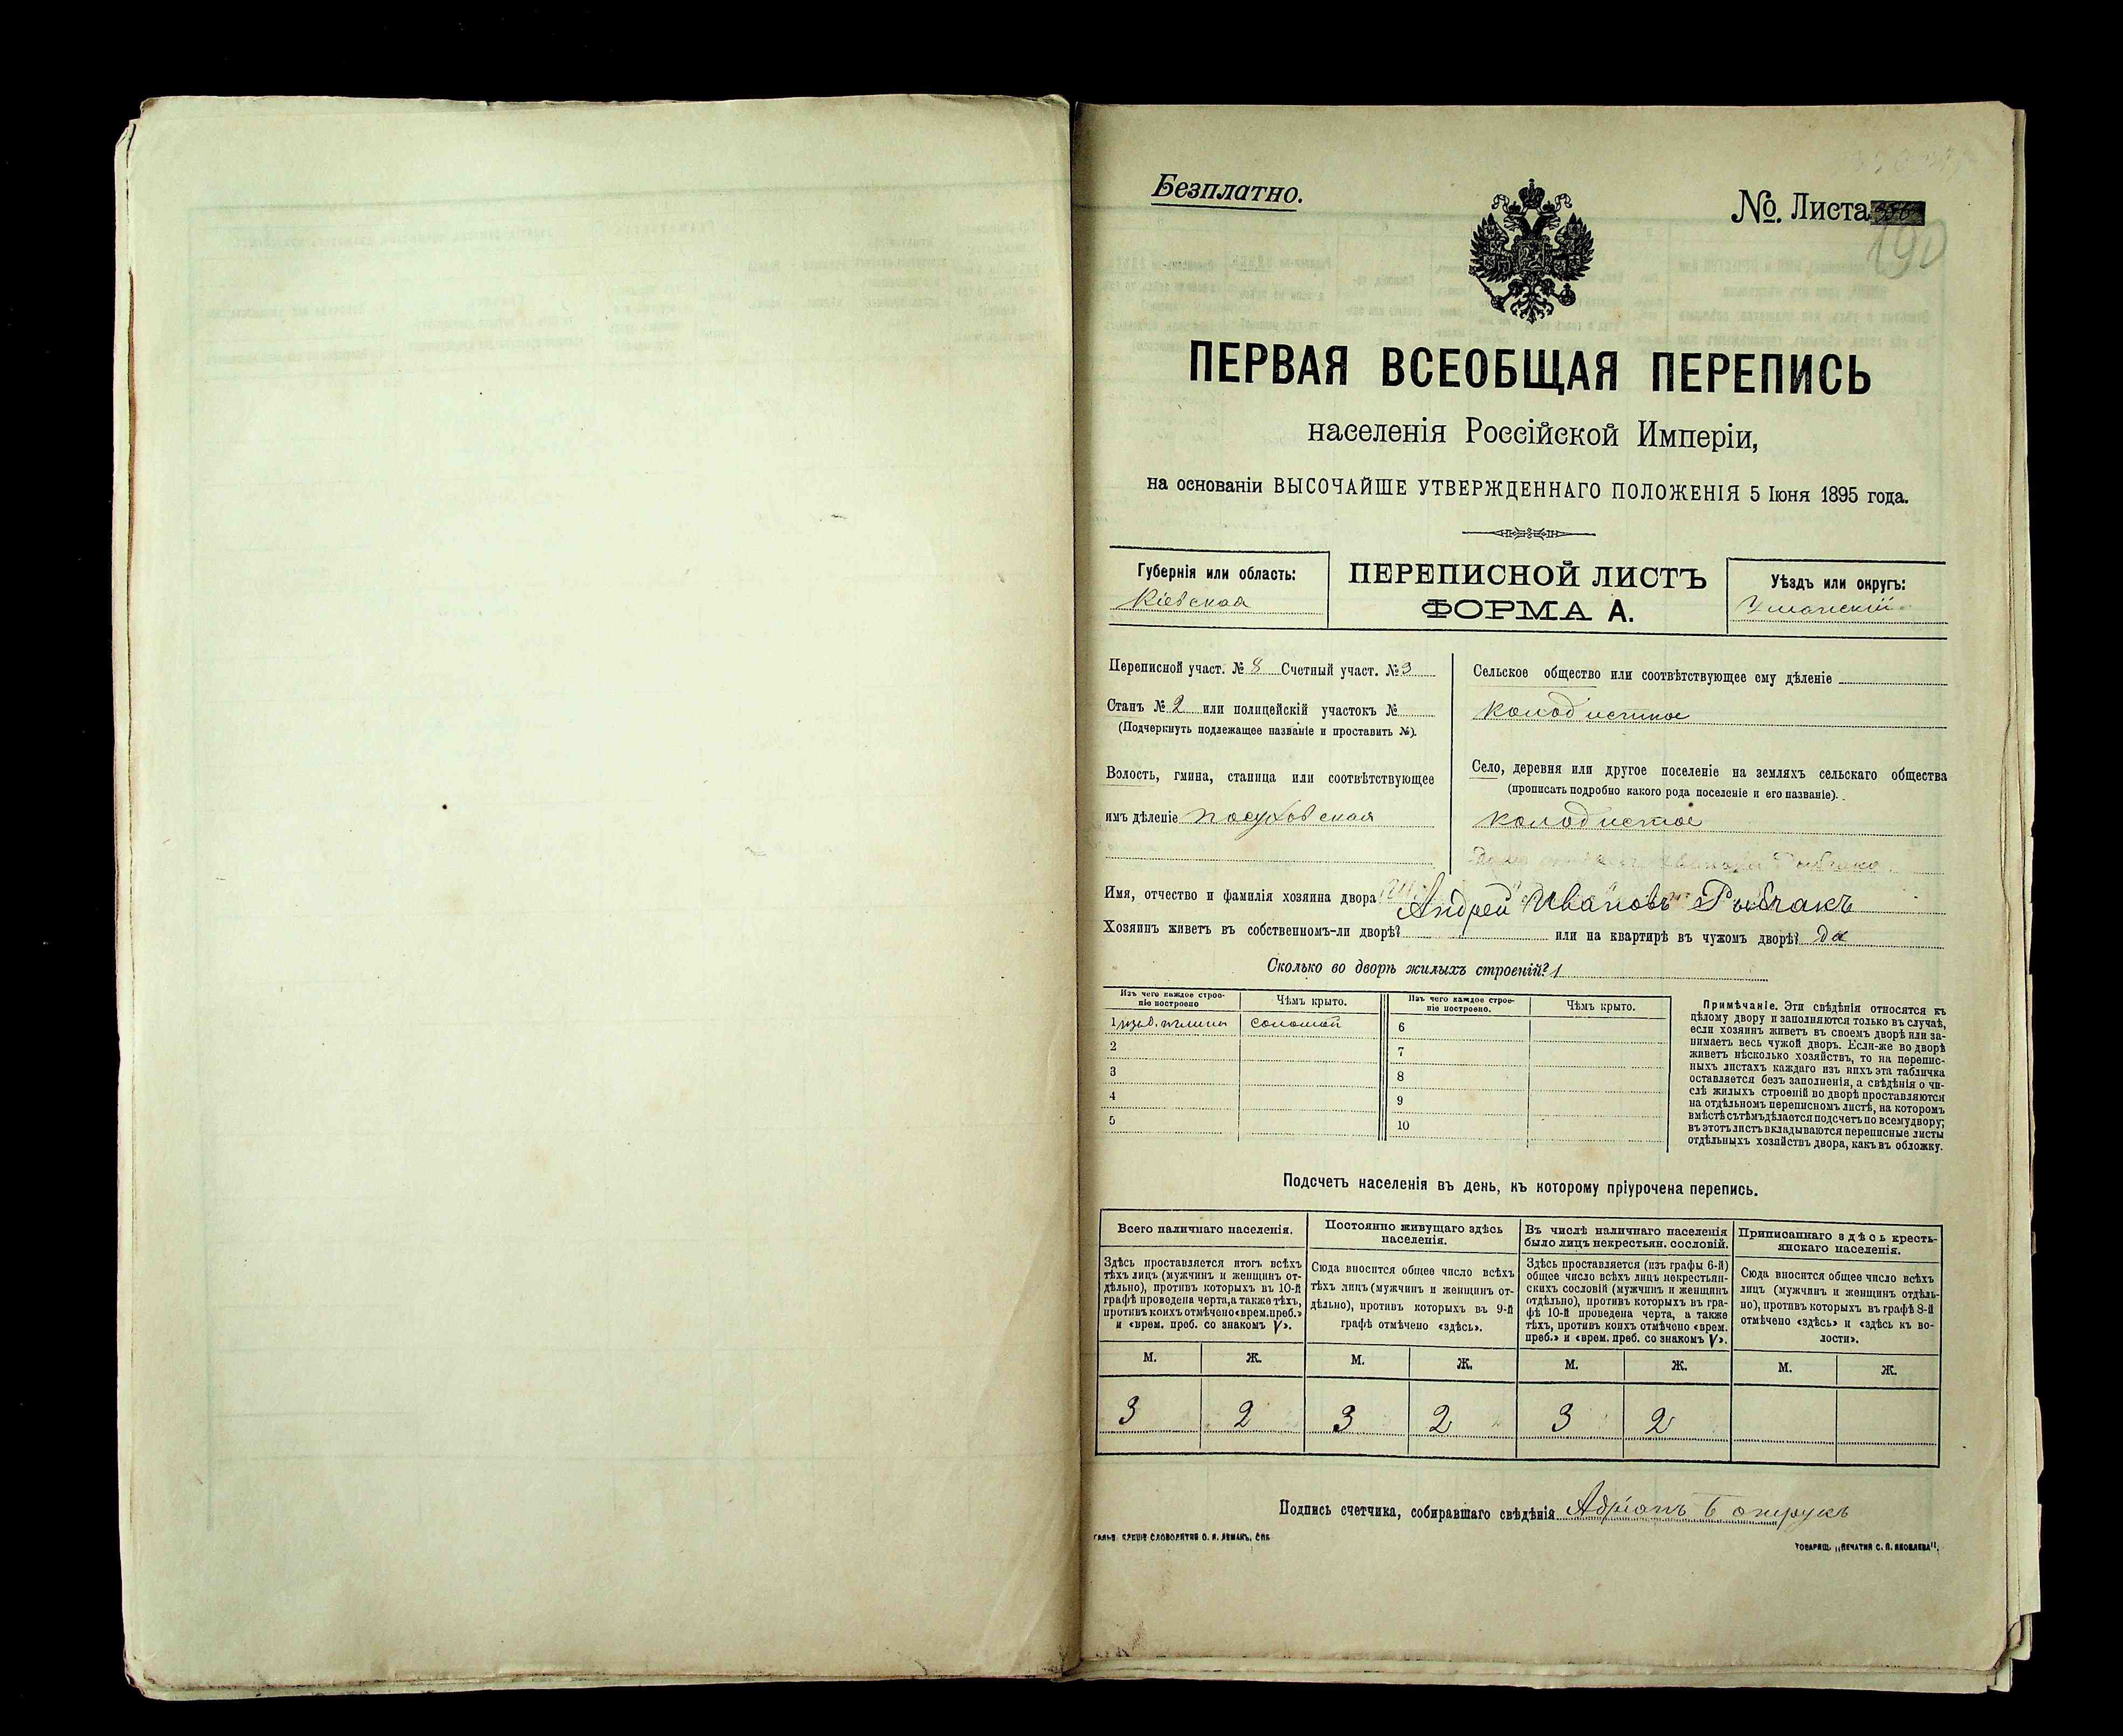 Безплатно.
№. Листа
190
ПЕРВАЯ ВСЕОБЩАЯ ПЕРЕПИСЬ
населенія Россійской Имперіи,
на основаніи ВЫСОЧАЙШЕ УТВЕРЖДЕННАГО ПОЛОЖЕНІЯ 5 Іюня 1895 года.
Губернія или область:
Кіевская
ПЕРЕПИСНОЙ ЛИСТЪ
ФОРМА А.
Уѣздъ или округъ:
Уманскій
Переписной участ. № 8 Счетный участ. № 3
Станъ № 2 или полицейскій участокъ №
(Подчеркнуть подлежащее названіе и проставить №).
Волость, гмина, станица или соотвѣтствующее
имъ дѣленіе посуховская
Сельское общество или соотвѣтствующее ему дѣленіе
колодистое
Село, деревня или другое поселеніе на земляхъ сельскаго общества
(прописать подробно какого рода поселеніе и его названіе).
колодистое
Имя, отчество и фамилія хозяина двора Андрей Ивановъ Рыбчакъ
Хозяинъ живетъ въ собственномъ-ли дворѣ? или на квартирѣ въ чужомъ дворѣ? да
Сколько во дворѣ жилыхъ строеній? 1
Изъ чего каждое строе-
ніе построено
Чѣмъ крыто.
Изъ чего каждое строе-
ніе построено.
Чѣмъ крыто.
1 глины соломой
2
3
4
5
6
7
8
9
10
Примѣчаніе. Эти свѣдѣнія относятся къ
цѣлому двору и заполняются только въ случаѣ,
если хозяинъ живетъ въ своемъ дворѣ или за-
нимаетъ весь чужой дворъ. Если-же во дворѣ
живетъ нѣсколько хозяйствъ, то на перепис-
ныхъ листахъ каждаго изъ нихъ эта табличка
оставляется безъ заполненія, а свѣдѣнія о чи-
слѣ жилыхъ строеній во дворѣ проставляются
на отдѣльномъ переписномъ листѣ, на которомъ
вмѣстѣ сътѣмъ дѣлается подсчетъ по всему двору;
въ этотъ листъ вкладываются переписные листы
отдѣльныхъ хозяйствъ двора, какъ въ обложку.
Подсчетъ населенія въ день, къ которому пріурочена перепись.
Всего наличнаго населенія.
Здѣсь проставляется итогъ всѣхъ
тѣхъ лицъ (мужчинъ и женщинъ от-
дѣльно), противъ которыхъ въ 10-й
графѣ проведена черта, а также тѣхъ,
противъ коихъ отмѣчено «врем. преб.»
и «врем. преб. со знакомъ V».
Постоянно живущаго здѣсь
населенія.
Сюда вносится общее число всѣхъ
тѣхъ лицъ (мужчинъ и женщинъ от-
дѣльно), противъ которыхъ въ 9-й
графѣ отмѣчено «здѣсь».
Въ числѣ наличнаго населенія
было лицъ некрестьян. сословій.
Здѣсь проставляется (изъ графы 6-й)
общее число всѣхъ лицъ некрестьян-
скихъ сословій (мужчинъ и женщинъ
отдѣльно), противъ которыхъ въ гра-
фѣ 10-й проведена черта, а также
тѣхъ, противъ коихъ отмѣчено «врем.
преб.» и «врем. преб. со знакомъ V».
Приписаннаго здѣсь кресть-
янскаго населенія.
Сюда вносится общее число всѣхъ
лицъ (мужчинъ и женщинъ отдѣль-
но), противъ которыхъ въ графѣ 8-й
отмѣчено «здѣсь» и «здѣсь къ во-
лости».
М. Ж. М. Ж. М. Ж. М. Ж.
3 2 3 2 3 2
Подпись счетчика, собиравшаго свѣдѣнія Адріанъ
ТОВАРИЩ. „ПЕЧАТНЯ С. П. ЯКОВЛЕВА".